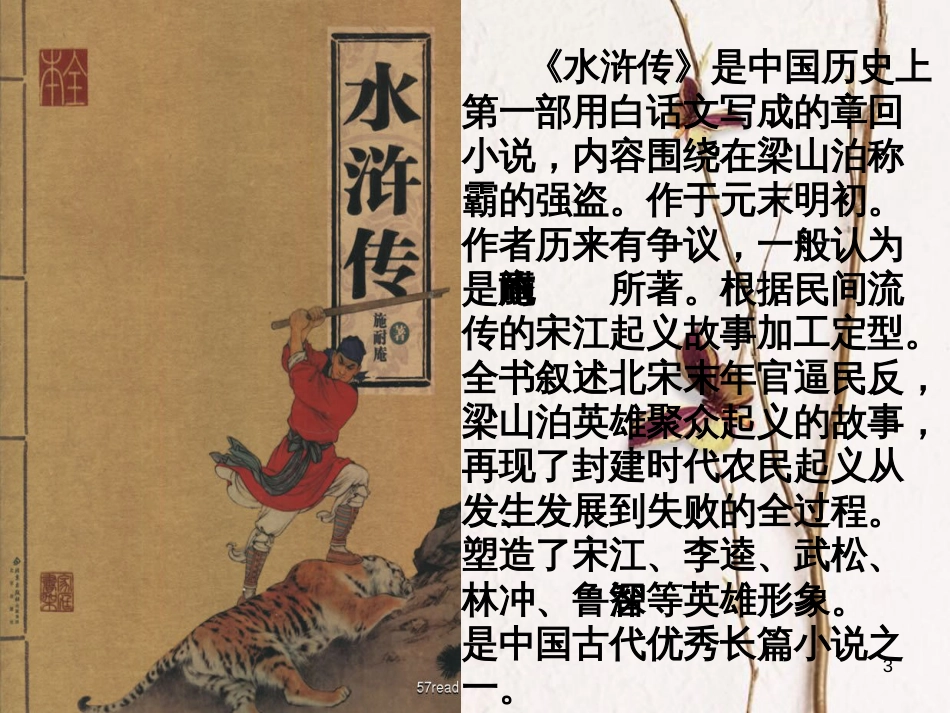 全
本
水
浒
传
施耐庵
著
57read
《水浒传》是中国历史上
第一部用白话文写成的章回
小说，内容围绕在梁山泊称
霸的强盗。作于元末明初。
作者历来有争议，一般认为
是 所著。根据民间流
传的宋江起义故事加工定型。
全书叙述北宋末年官逼民反，
梁山泊英雄聚众起义的故事，
再现了封建时代农民起义从
发生、发展到失败的全过程。
塑造了宋江、李逵、武松、
林冲、鲁 等英雄形象。
是中国古代优秀长篇小说之
一。
3